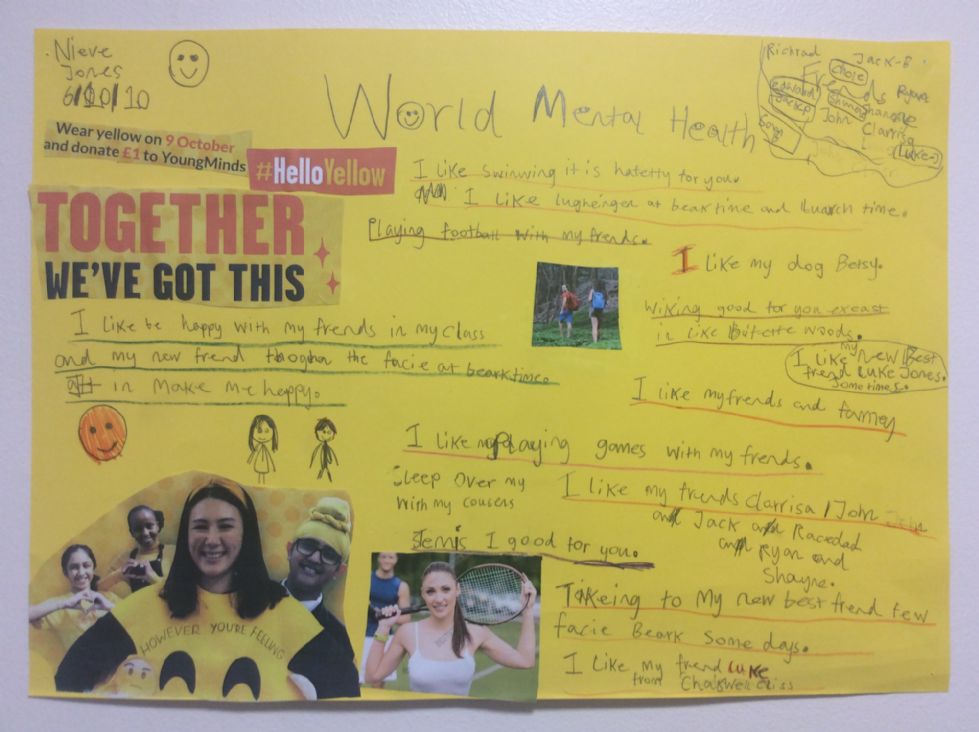 Nieve
Jones
6/10/10
World Mental Health
Richrad
Jack-B
Chole
Friends
Ryan
edward
John
Clarrisa
(Luke-J
Wear yellow on 9 October
and donate £1 to YoungMinds
#HelloYellow
TOGETHER
WE'VE GOT THIS
I like swinwing it is hatetty for you.
I Like lughenger at beaktime and luanch time.
Playing football with my frends.
I Like my dog Betsy.
Wiking good for you exeast
in Like woods.
I Like my New Best
frend Luke Jones.
Some times.
I Like be happy with my frends in my class
and my new frend the facie at bearktime.
in Make me happy.
I Like my frends and famey
I Like playing games with my frends.
Sleep Over my
with my cousens
I Like my frends Clarrisa / John
and Jack and Racedad
and Ryan and
Shayne.
I good for you.
Takeing to My new best frend few
facie Beark Some days.
I Like my frend Luke
from Chalkwell
HOWEVER YOU'RE FEELING